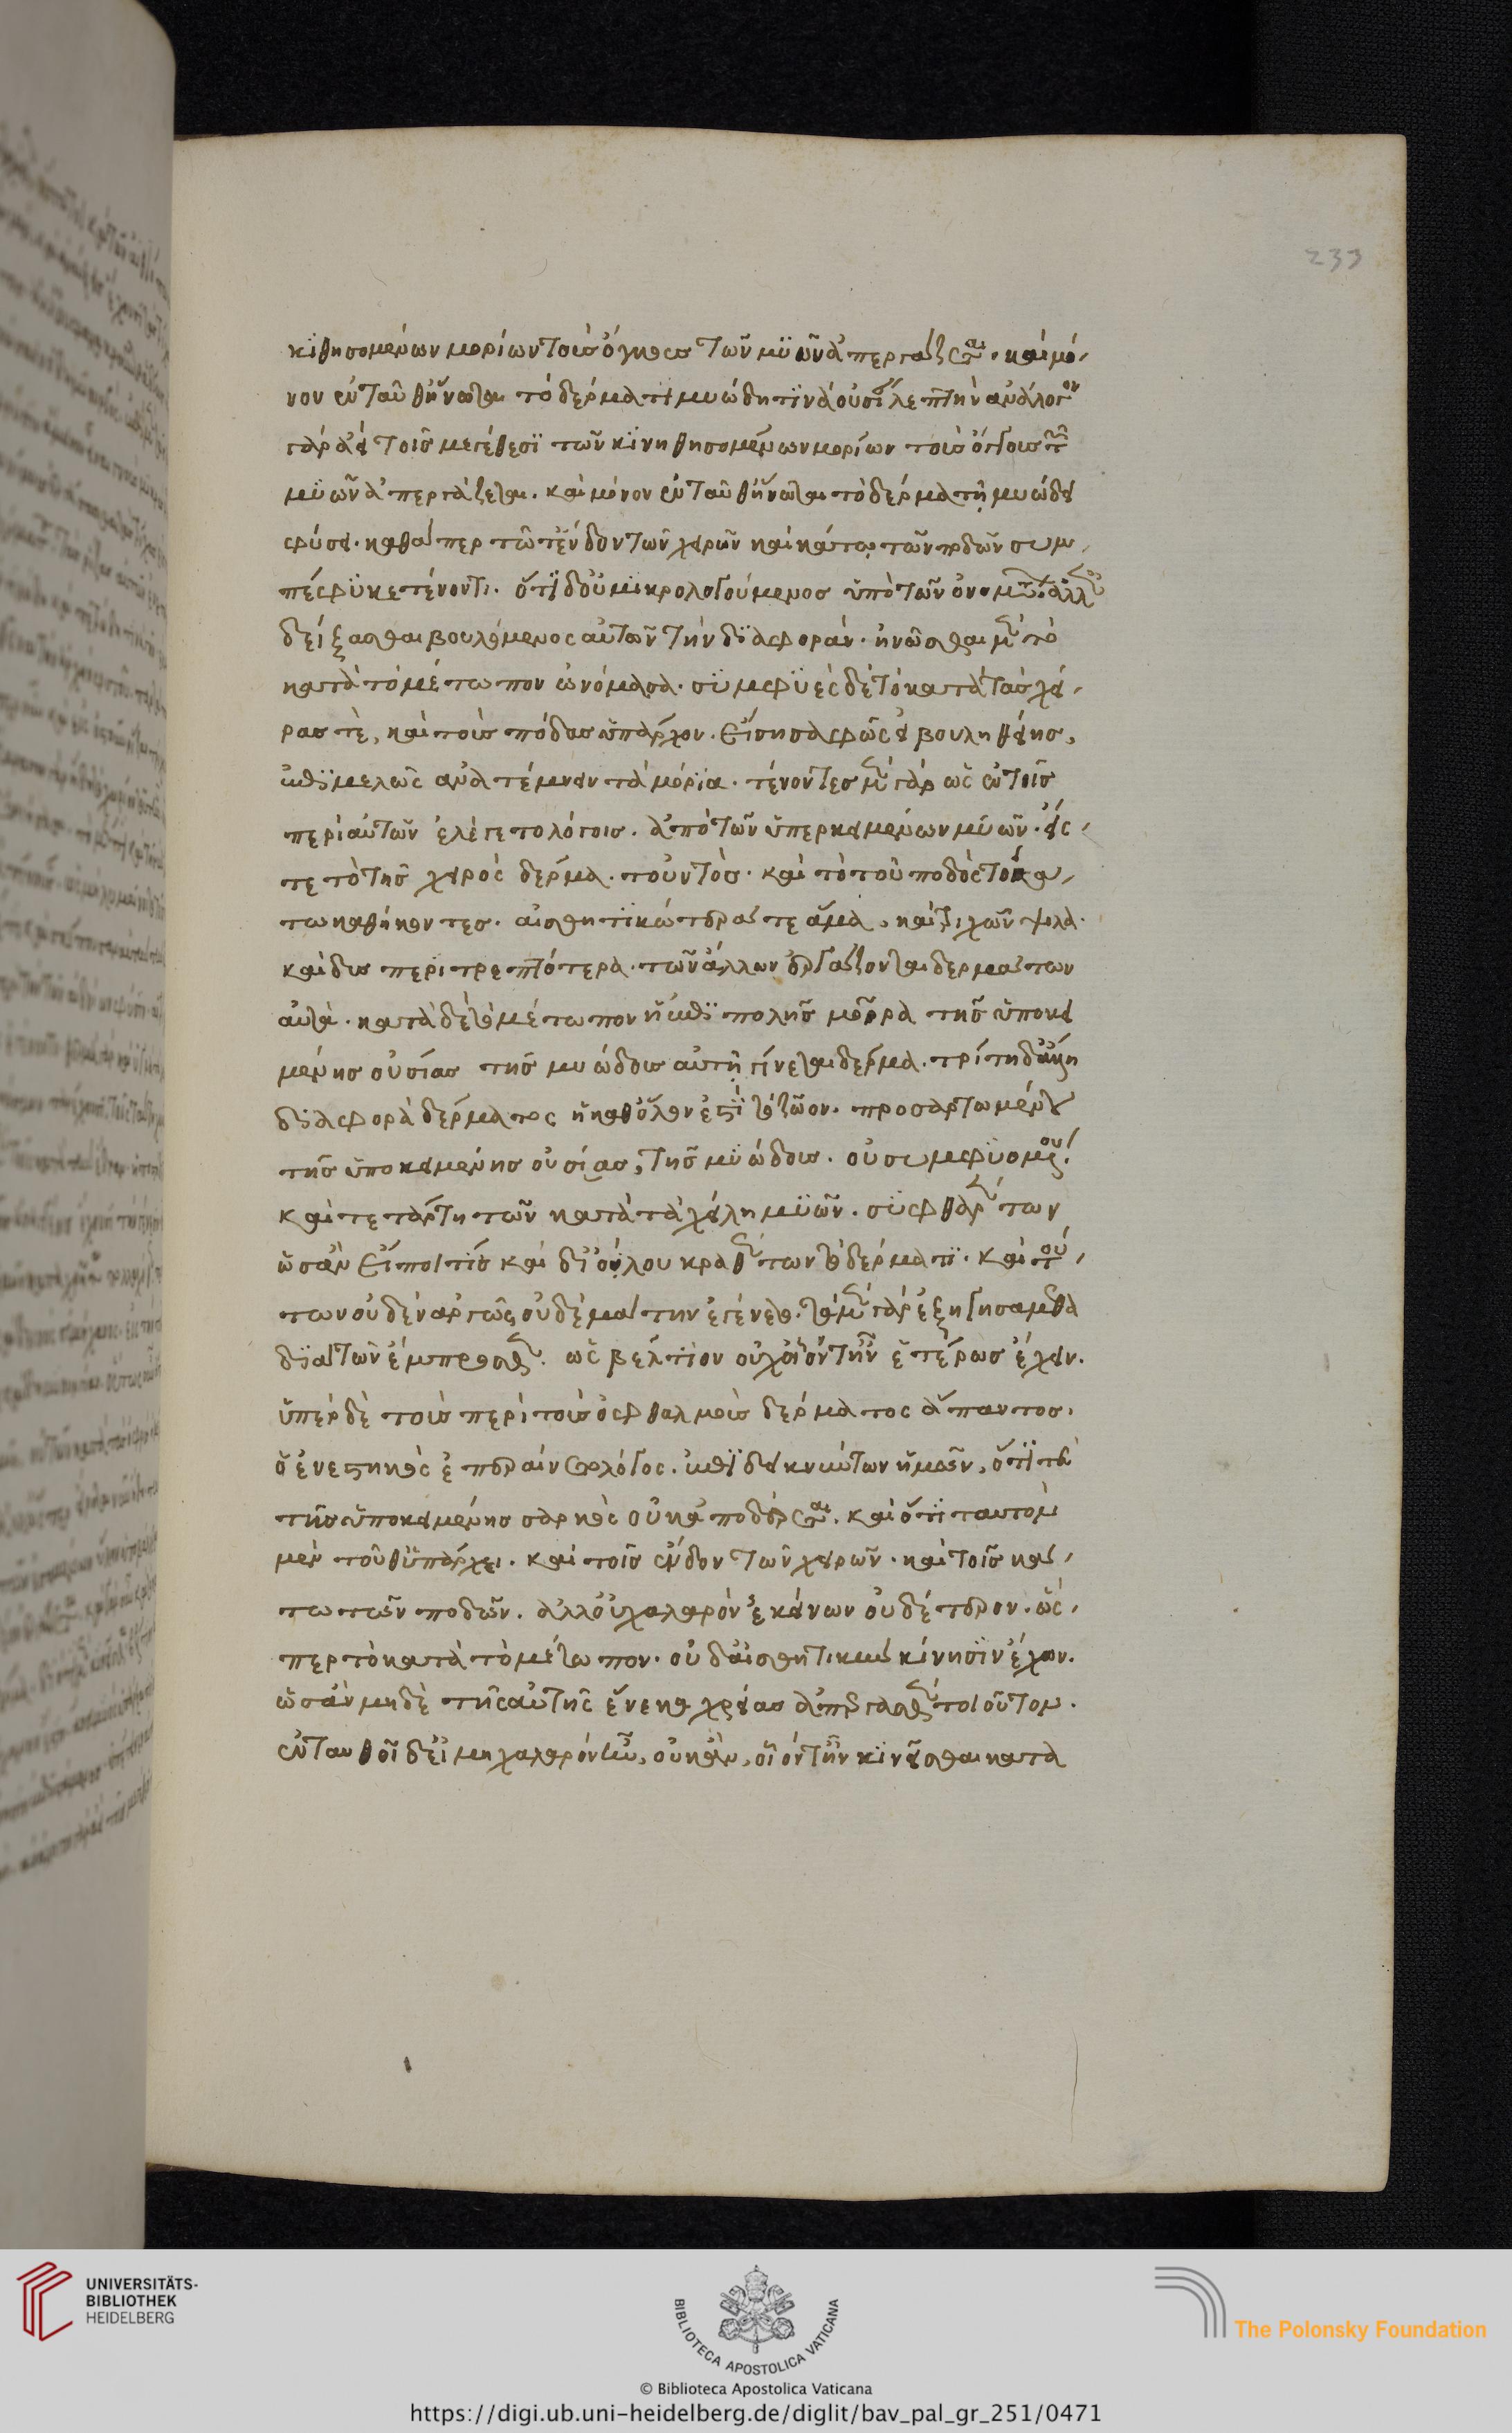 233
κινησομένων μορίων τοὺς ὄγκους τῶν μυῶν ἀπεργάζεται. καὶ μό-
νον ἐνταῦθ' ἥνωται τὸ δέρμα
γὰρ ἀεὶ τοῖς μεγέθεσι τῶν κινηθησομένων μορίων τοὺς ὄγκους τῶν
μυῶν ἀπεργάζεται. καὶ μόνον ἐνταῦθ' ἥνωται τὸ δέρμα τῇ μυώδει
φύσει. καθάπερ τῶ τένδον τῶν χειρῶν καὶ κάτω τῶν ποδῶν συμ-
πέφυκε τένοντι. ὅτι δ' οὐ μικρολογούμενος ὑπὸ τῶν ὀνομάτων ἀλλὰ
δείξασθαι βουλόμενος αὐτῶν τὴν διαφοράν. ἡνῶσθαι μὲν τὸ
κατὰ τὸ μέτωπον ὠνόμασα. συμφυὲς δὲ τὸ κατὰ τὰς χεῖ-
ρας τὲ, καὶ τοὺς πόδας ὑπάρχον. εἴση σαφῶς εἰ βουληθείης,
ἐπιμελῶς ἀνατέμνειν τὰ μόρια. τένοντες μὲν γὰρ ὡς ἐν τοῖς
περὶ αὐτῶν ἐλέγετο λόγοις. ἀπὸ τῶν ὑπερκειμένων μυῶν. εἴς
τε τὸ τῆς χειρὸς δέρμα. τοὐντὸς. καὶ τὸ τοῦ ποδὸς τοὺκα-
τω καθήκοντες. αἰσθητικώτερά τε ἅμα, καὶ τριχῶν ψιλὰ.
καὶ δυσπεριτρεπτότερα. τῶν ἄλλων ἐργάζονται δερμάτων
αὐτὰ. κατὰ δὲ τὸ μέτωπον ἡ ἐπιπολῆς μοῖρα τῆς ὑποκει
μένης οὐσίας τῆς μυώδους αὐτὴ γίνεται δέρμα. τρίτη δ' ἄλλη
διαφορὰ δέρματος ἡ καθ' ὅλον ἐστὶ τὸ ζῶον. προσαρτωμένου
τῆς ὑποκειμένης οὐσίας, τῆς μυώδους. οὐ συμφυομένου
καὶ τετάρτη τῶν κατὰ τὰ χείλη μυῶν. συμφθαρέντων
ὡς ἂν εἴποι τίς καὶ δι' ὅλου κραθέντων τῶ δέρματι. καὶ τού-
των οὐδὲν ἀργῶς οὐδὲ μάτην ἐγένετο. τὰ μὲν γὰρ ἐξηγησάμεθα
διὰ τῶν ἔμπροσθεν. ὡς βέλτιον οὐχ οἷόν τ' ἦν ἑτέρως ἔχειν.
ὑπὲρ δὲ τοῦ περὶ τοὺς ὀφθαλμοὺς δέρματος ἅπαντος,
ὃ ἐνεστηκὸς ἐπεραίνετο λόγος. ἐπιδεικνύντων ἡμῶν, ὅτι τὲ
τῆς ὑποκειμένης σαρκὸς οὐκ ἀποδέρεται. καὶ ὅτι ταυτὸ μὲν
μὲν τοῦθ' ὑπάρχει. καὶ τοῖς ἔνδον τῶν χειρῶν. καὶ τοῖς κά-
τω τῶν ποδῶν. ἀλλ' οὐ χαλαρὸν ἐκείνων οὐδέτερον. ὥς-
περ τὸ κατὰ τὸ μέτωπον. οὐδ' αἰσθητικὴν κίνησιν ἔχον.
ὡς ἂν μηδὲ τῆς αὐτῆς ἕνεκα χρείας ἀπεργασθὲν τοιοῦτον.
ἐνταυθοῖ δὲ εἰ μὴ χαλαρόν τ' ἦν, οὐκ ἂν, οἷόν τ' ἦν κινεῖσθαι κατὰ
UNIVERSITÄTS-
BIBLIOTHEK
HEIDELBERG
BIBLIOTECA APOSTOLICA VATICANA
The Polonsky Foundation
© Biblioteca Apostolica Vaticana
https://digi.ub.uni-heidelberg.de/diglit/bav_pal_gr_251/0471